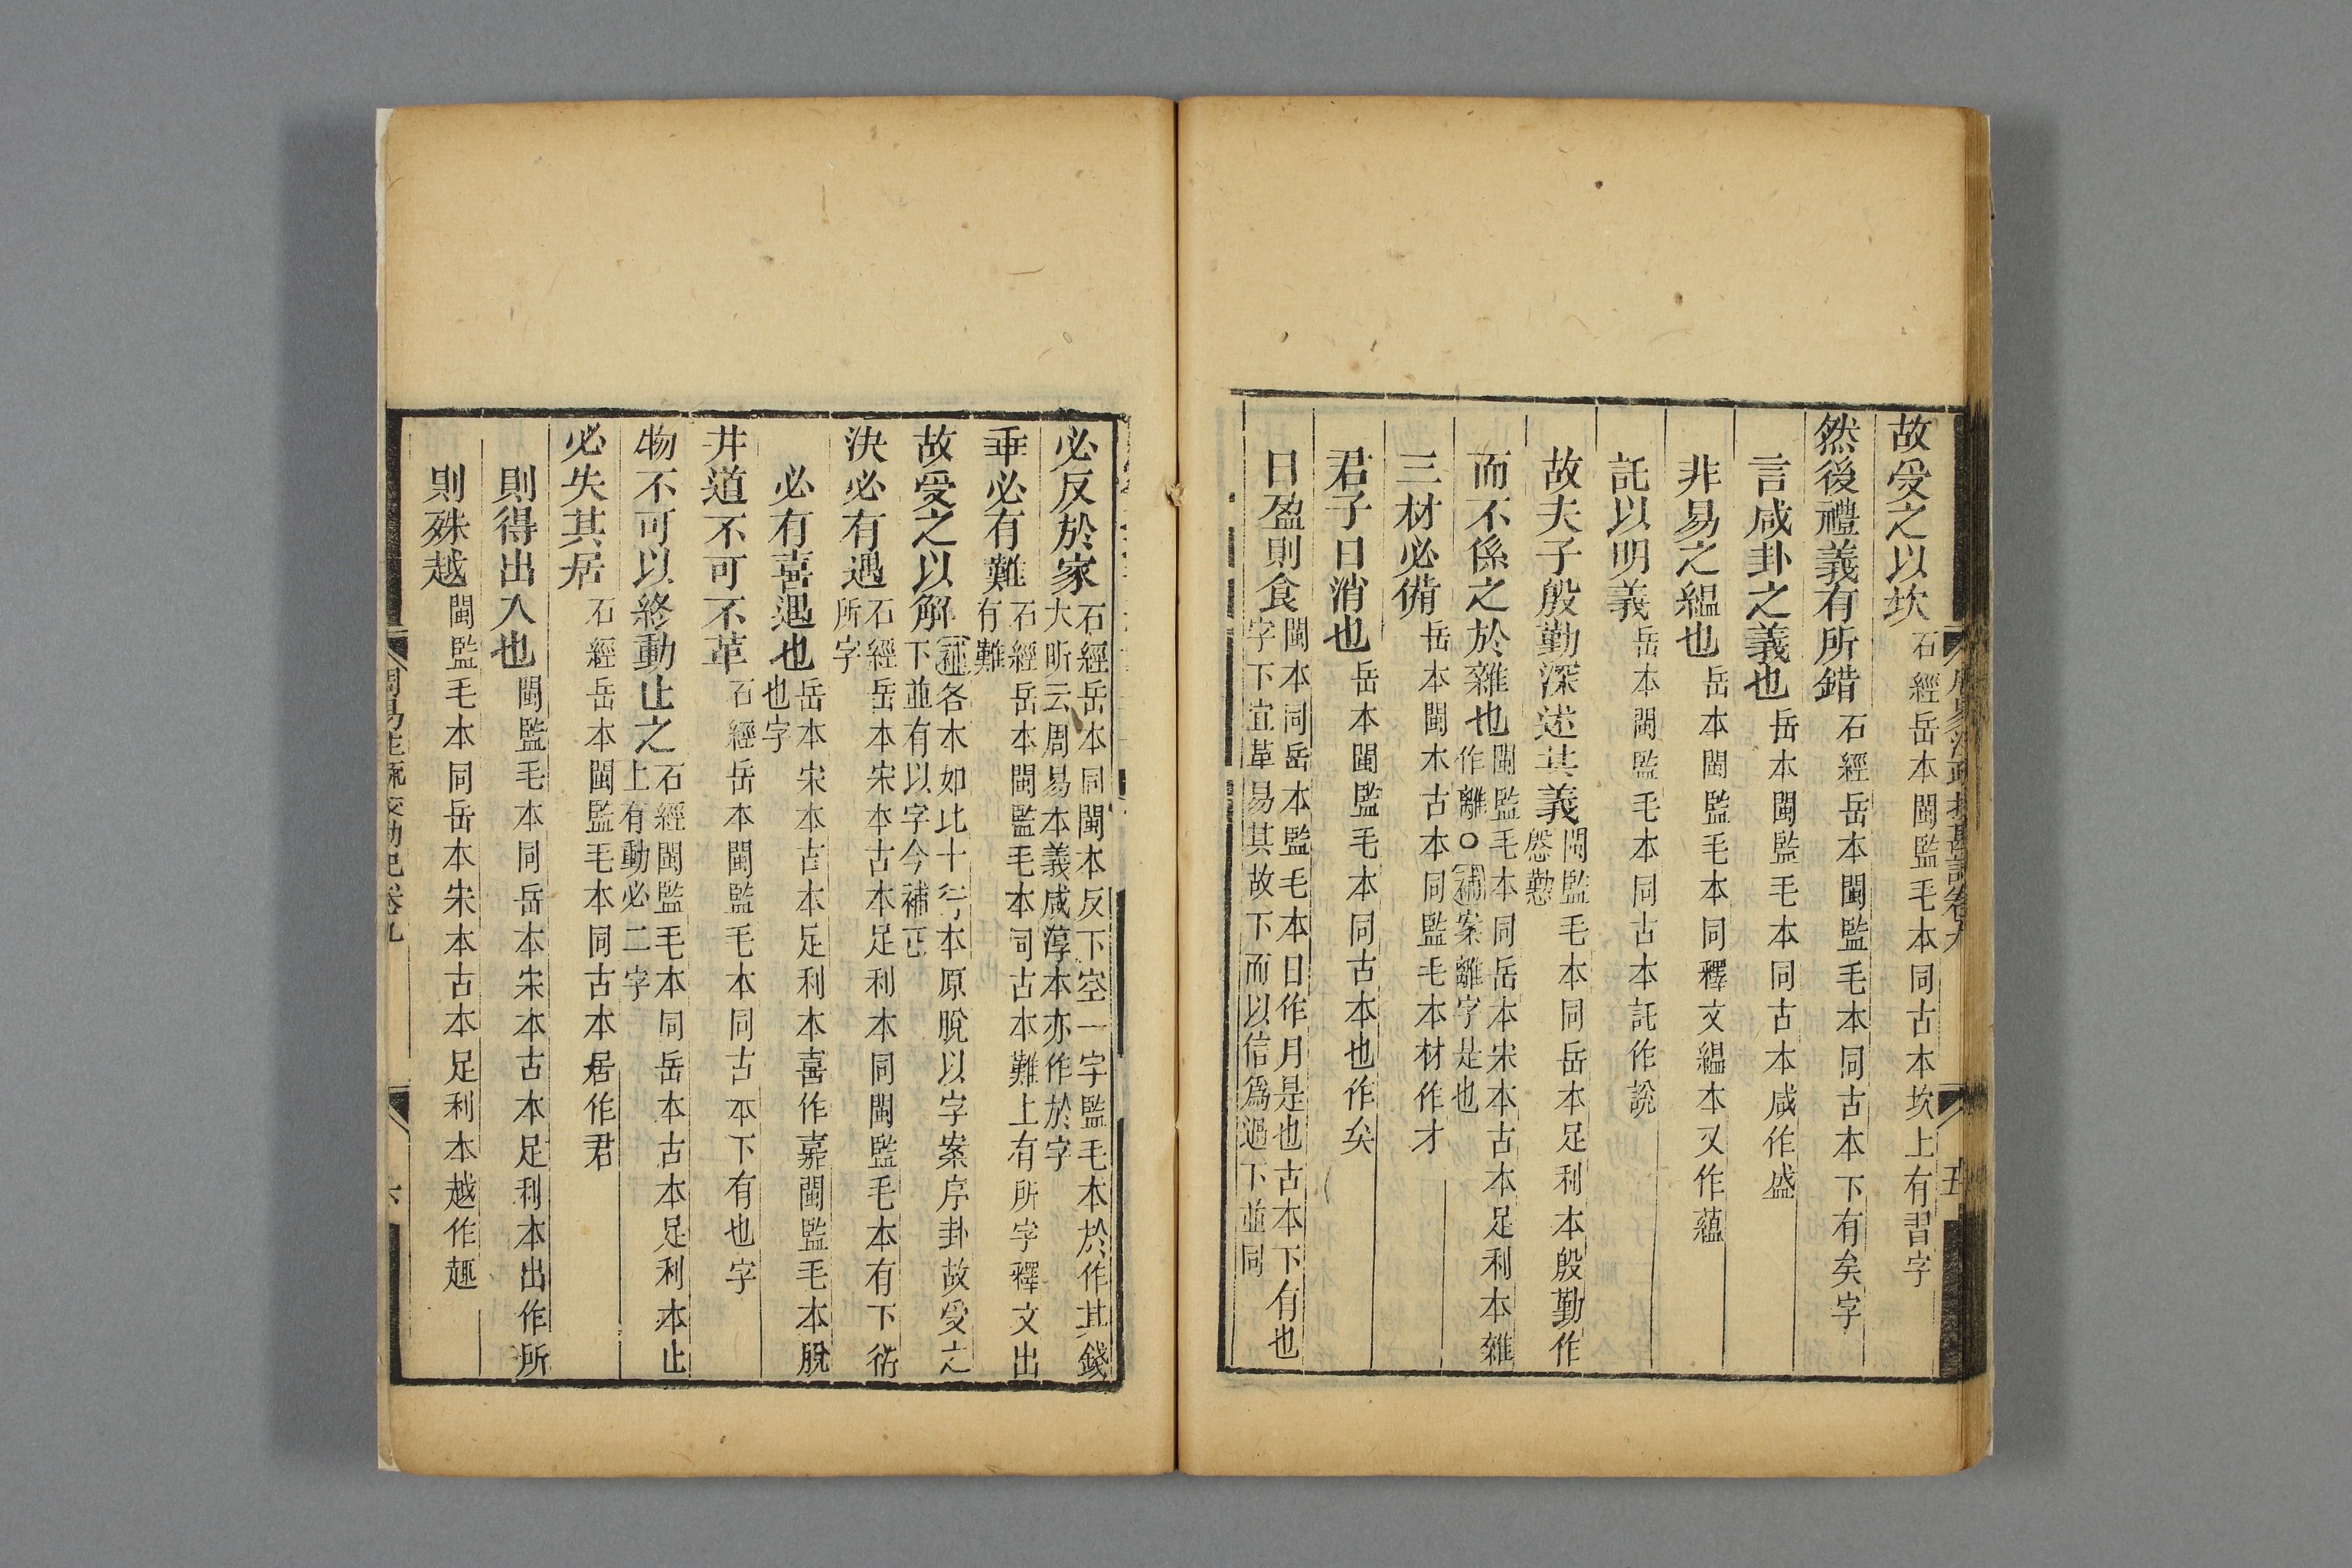 故受之以坎石經岳本閩監毛本同古本坎上有習字
然後禮義有所錯石經岳本閩監毛本同古本下有矣字
言咸卦之義也岳本閩監毛本同古本咸作盛
非易之緼也岳本閩監毛本同釋文緼本又作蘊
託以明義岳本閩監毛本同古本託作說
故夫子殷勤深述其義閩監毛本同岳本足利本殷勤作
慇懃
而不係之於雜也閩監毛本同岳本宋本古本足利本雜
作離○補案離字是也
三材必備岳本閩本古本同監毛本材作才
君子日消也岳本閩監毛本同古本也作矣
日盈則食閩本同岳本監毛本日作月是也古本下有也
字下宜革易其故下而以信爲過下並同
必反於家石經岳本同閩本反下空一字監毛本於作其錢
大昕云周易本義咸淳本亦作於字
乖必有難石經岳本閩監毛本同古本難上有所字釋文出
有難
故受之以解補各本如此十行本原脫以字案序卦故受之
下並有以字今補正
決必有遇石經岳本宋本古本足利本同閩監毛本有下衍
所字
必有喜遇也岳本宋本古本足利本喜作嘉閩監毛本脫
也字
井道不可不革石經岳本閩監毛本同古本下有也字
物不可以終動止之石經閩監毛本同岳本古本足利本止
上有動必二字
必失其居石經岳本閩監毛本同古本居作君
則得出入也閩監毛本同岳本宋本古本足利本出作所
則殊越閩監毛本同岳本宋本古本足利本越作趣
周易注疏校勘記卷九